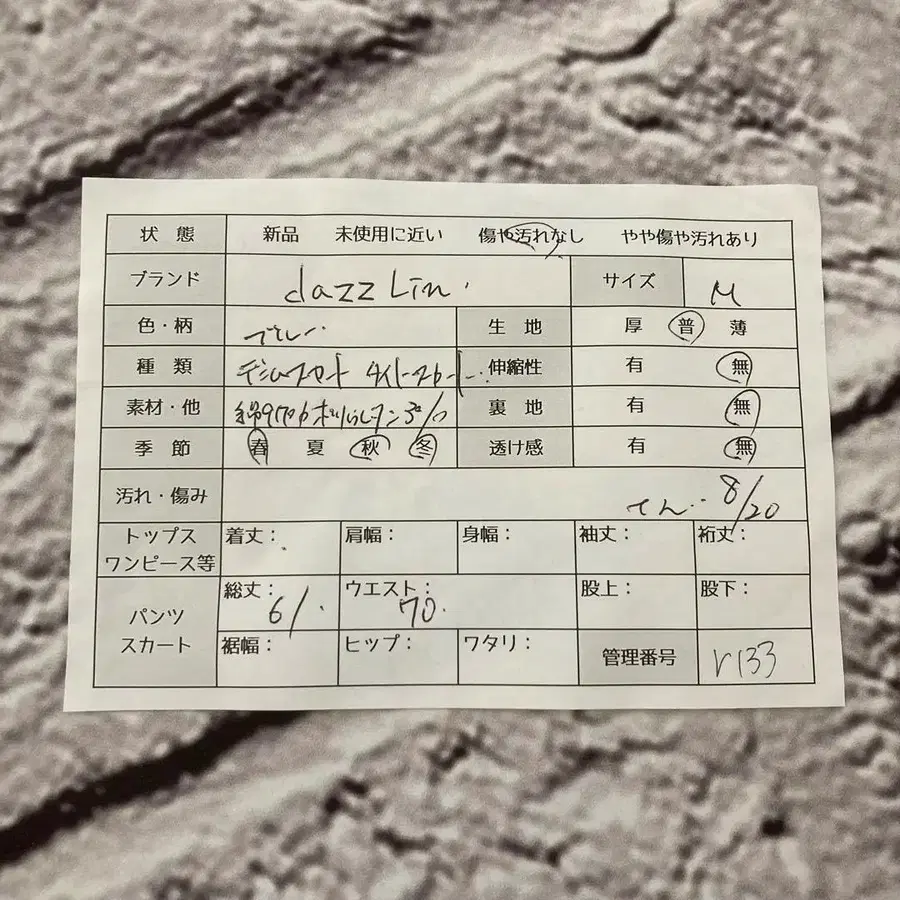 状態 新品 未使用に近い 傷や汚れなし やや傷や汚れあり
ブランド dazzLin. サイズ M
色・柄 生地 厚 普 薄
種類 デニムスカート タイトスカート 伸縮性 有 無
素材・他 裏地 有 無
季節 春 夏 秋 冬 透け感 有 無
汚れ・傷み 8/20
トップス ワンピース等 着丈: 肩幅: 身幅: 袖丈: 裄丈:
パンツ スカート 総丈: 61. ウエスト: 70. 股上: 股下:
裾幅: ヒップ: ワタリ: 管理番号 r133